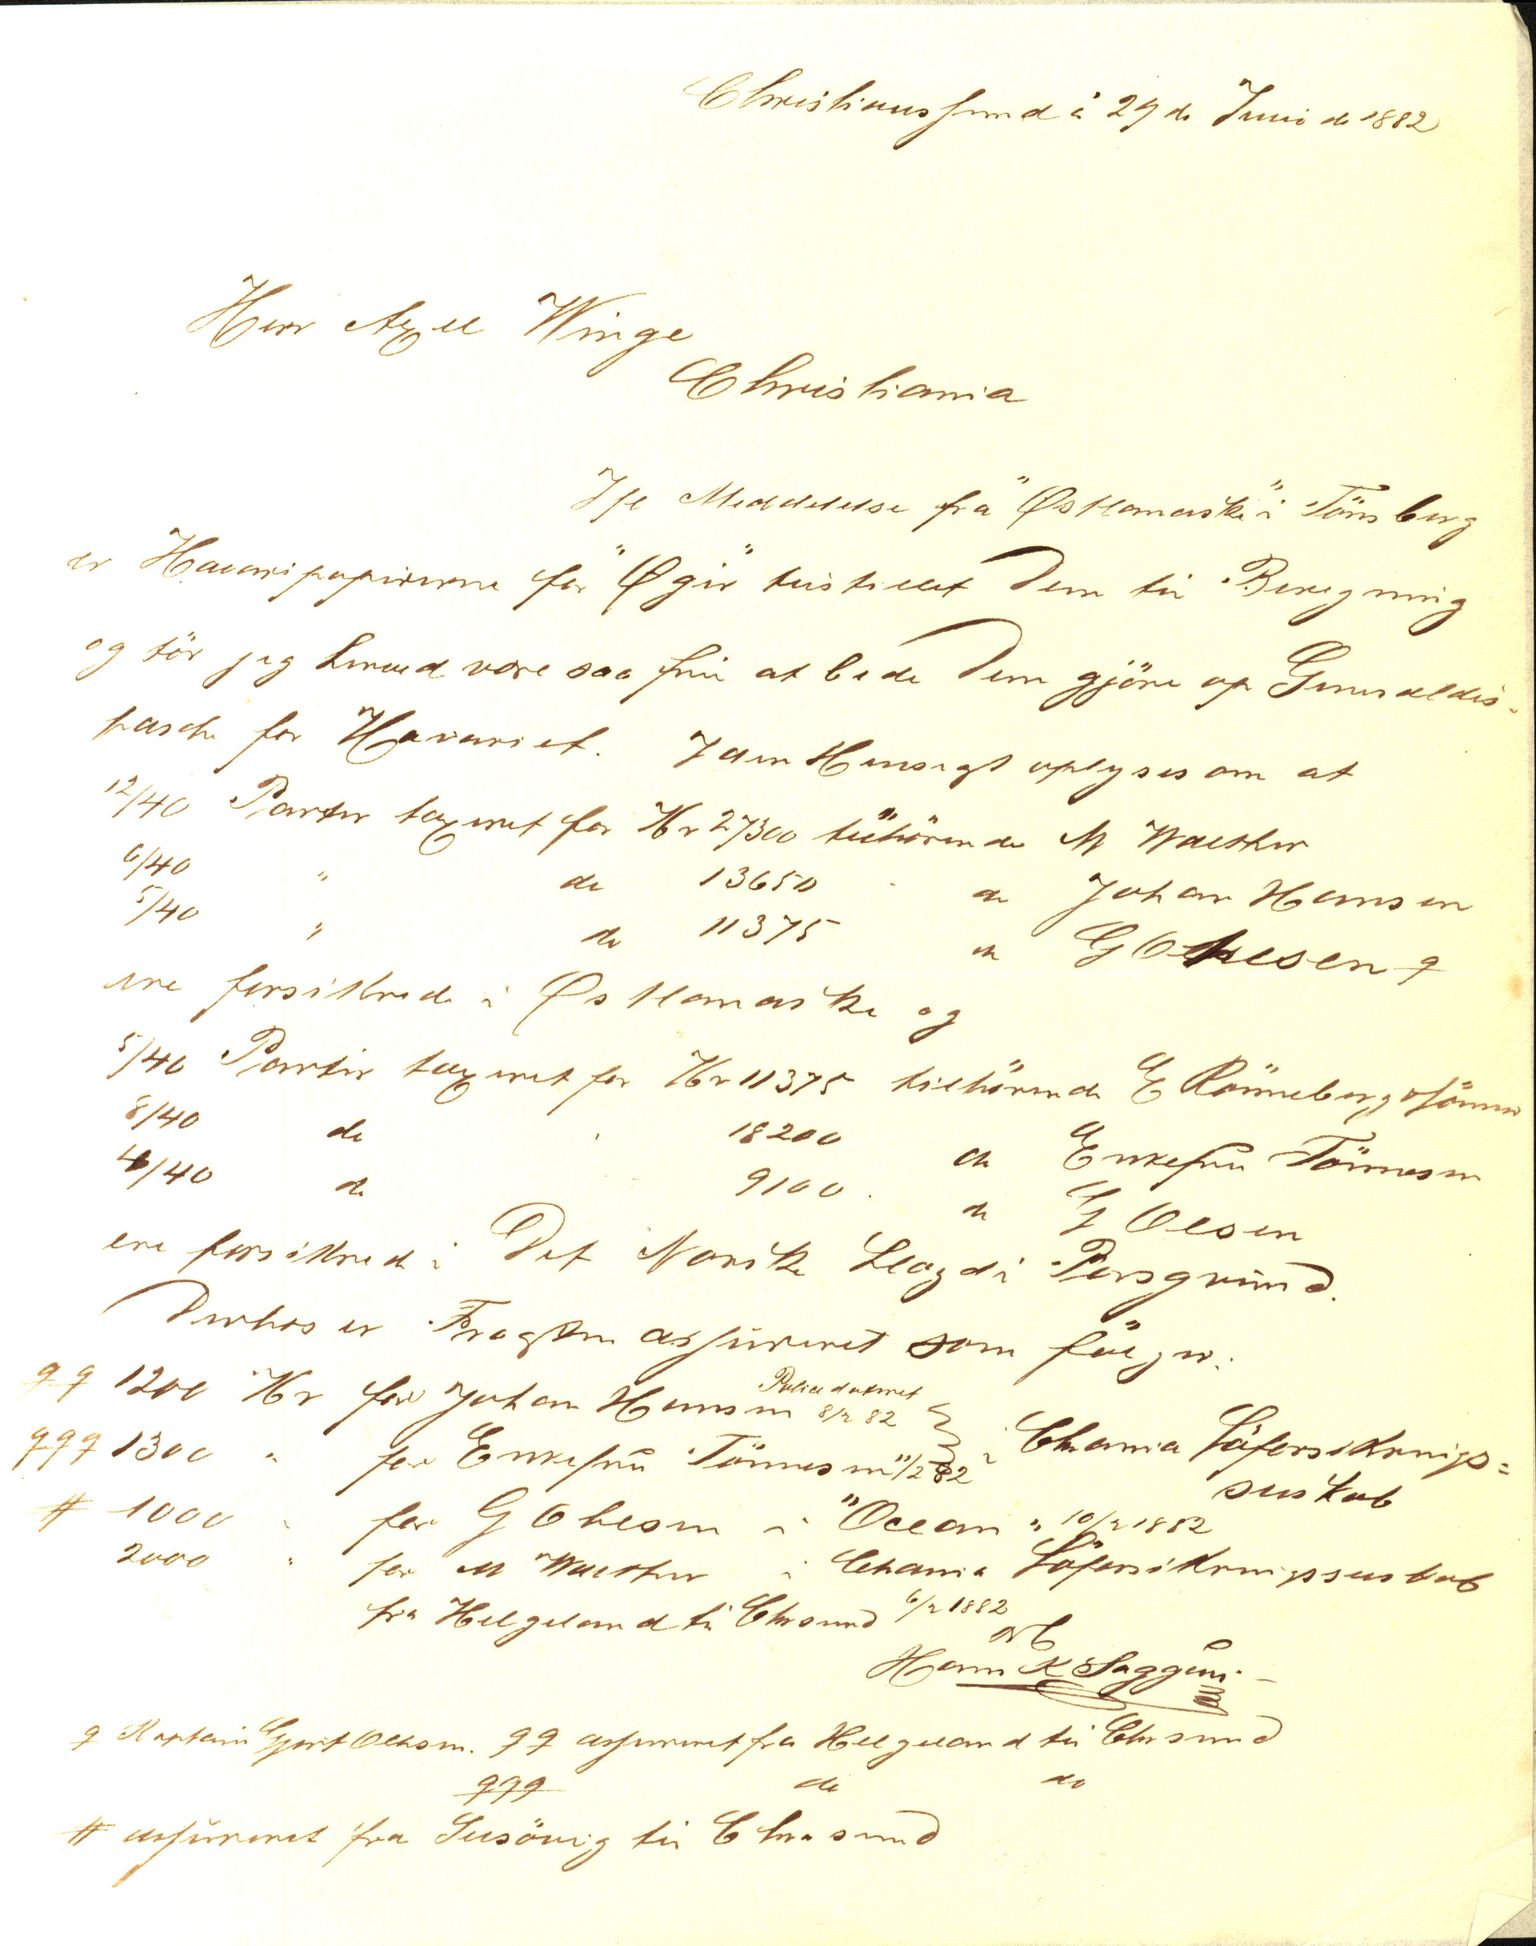 Christianssund a 29 de Juni de 1882
Herr Axel Winge
Christiania
Ifl Meddelelse fra "Østlandske" i Tönsberg
er Havaripapirerne for "Øgir" tilstillet Dem til Beregning
og tör jeg herved være saa fri at bede Dem gjöre op Generaldis-
pasche for Havariet. I den Hensigt oplyses om at
12/40 Parter taxeret for Kr 27300 tilhörende M Walther
6/40 " do 13650 do Johan Hansen
5/40 " do 11375 do G Olesen 9
ere forsikrede i Østlandske og
5/40 Parter taxeret for Kr 11375 tilhörende E Rönneberg & Sönner
8/40 do 18200 do Enkefru Tönnesen
4/40 do 9100 do G Olsen
ere forsikrede i Det Norske Lloyd i Porsgrund.
Derhos er Fragten assureret som fölger:
99 1200 Kr for Johan Hansen Police dateret 8/2 82
999 1300 " for Enkefru Tönnesen 11/2 82 i Chania Söforsikrings=
selskab
# 1000 " for G Olesen i "Ocean" 10/2 1882
2000 " for M Walther i Chania Söforsikringsselskab
fra Helgeland til Chrsund 6/2 1882
Hans K
9 Kaptain Gjert Olesen. 99 assureret fra Helgeland til Chrsund
999 do do
# assureret fra til Chrsund